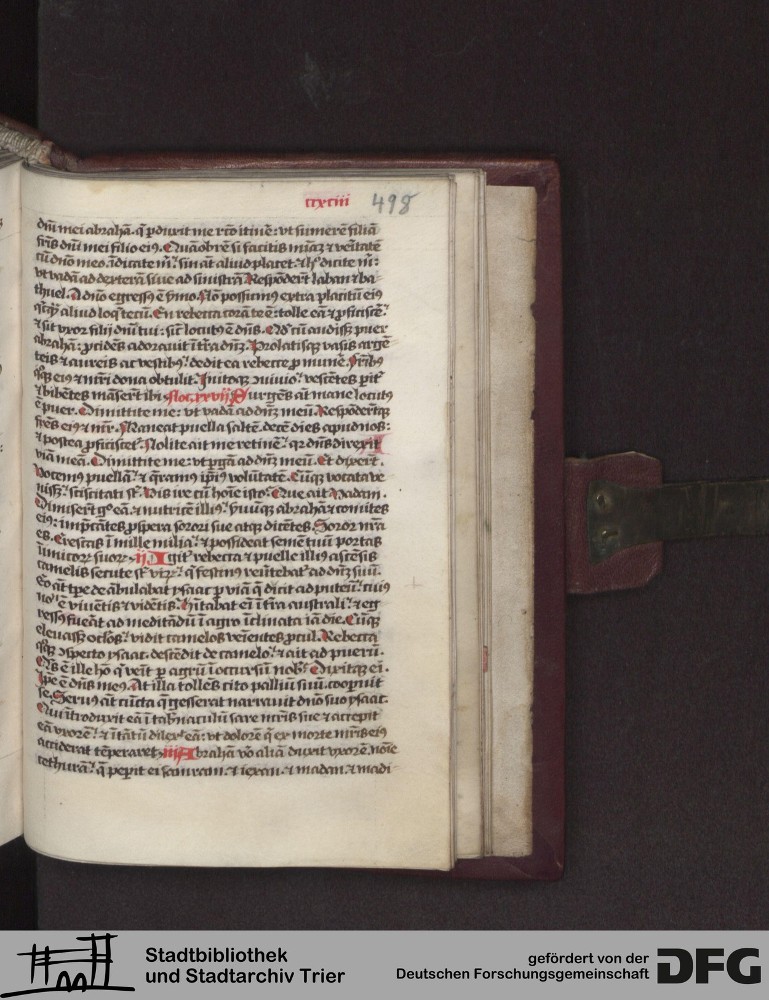 ccxciii 498
dn̄i mei abrahā. q̄ ꝑduxit me rc̄o itinē: vt sumerē filiā
fr̄is dn̄i mei filio eiꝰ. Quāobrē si facitis mīaꝫ ⁊ veritatē
cū dn̄o meo īdicate m̄: sin āt aliud placet ⁊ hͦ dicite m̄:
vt vadā ad dexterā siue ad sinistrā Respōderūt laban ⁊ ba
thuel. A dn̄o egressꝰ ē ẜmo. Nō possumꝰ extra placitū eiꝰ
aliud loq̄ tecū. En rebecca corā te ē: tolle eā ⁊ ꝓficiscē
⁊ sit vxor filij dn̄i tui: sic̄ locutꝰ ē dn̄s. Qd̄ cū audissꝫ puer
abrahā: ꝓcidēs adorauit ī t̄ra dn̄ꝫ. Prolatisqꝫ vasis argē
teis ⁊ aureis ac vestibꝰ: dedit ea rebecce ꝓ munē. Fr̄ibꝰ
qͦqꝫ eiꝰ ⁊ mr̄i dona obtulit. Initoqꝫ ꝯuiuio: vescētes ꝑit̄
⁊ bibētes māserūt ibi Surgēs āt mane locutꝰ
ē puer. Dimittite me: vt vadā ad dn̄ꝫ meū. Respōderūtqꝫ
fr̄es eiꝰ ⁊ mr̄. Maneat puella saltē decē dies apud nos:
⁊ postea ꝓficiscet̄. Nolite ait me retinē: qꝛ dn̄s direxit
viā meā. Dimittite me: vt ꝑgā ad dn̄ꝫ meū. Et dixerūt.
Vocemꝰ puellā: ⁊ q̄ramꝰ ip̄iꝰ volūtatē. Cūqꝫ vocata ve
nissꝫ: sciscitati sūt. Vis ire cū hoīe isto. Que ait Vadam.
Dimiserūt gͦ eā ⁊ nutricē illiꝰ: ẜuūqꝫ abrahā ⁊ comites
eiꝰ: imp̄cātes ꝓspera sorori sue atqꝫ dicētes. Soror nr̄a
es. Crescas ī mille milia: ⁊ possideat semē tuū portas
īimicoꝝ suoꝝ. Igit̄ rebecca ⁊ puelle illiꝰ ascēsis
camelis secute sūt viꝝ: q̄ festinꝰ reuertebat̄ ad dn̄ꝫ suū.
Eo āt tꝑe deābulabat ysaac ꝑ viā q̄ dicit̄ ad puteū: cuiꝰ
nomē ē viuentis ⁊ vidētis. Hītabat eī ī t̄ra australi: ⁊ eg
ressꝰ fuēat ad meditādū ī agro īclinata iā die. Cūqꝫ
eleuassꝫ oculos: vidit camelos veniētes ꝓcul. Rebecca
qͦqꝫ ꝯspecto ysaac. descēdit de camelo: ⁊ ait ad puerū.
Qͥs ē ille hō q̄ venit ꝑ agrū ī occursū nobis. Dixitqꝫ ei.
Ipe ē dn̄s meꝰ. At illa tollēs cito palliū suū. cooꝑuit
se. Seruꝰ āt cūcta q̄ gesserat narrauit dn̄o suo ysaac.
Qui ītroduxit eā ī tab̄naculū sare mr̄is sue ⁊ accepit
eā vxorē: ⁊ ītātū dilexit eā: vt dolorē q̄ ex morte mr̄is eiꝰ
acciderat tēperaret. iii Abrahā v̄o aliā duxit vxorē. noīe
cethurā: q̄ peꝑit ei zamram. ⁊ iexan. ⁊ madan. ⁊ madi
Stadtbibliothek
und Stadtarchiv Trier
gefördert von der
Deutschen Forschungsgemeinschaft
DFG